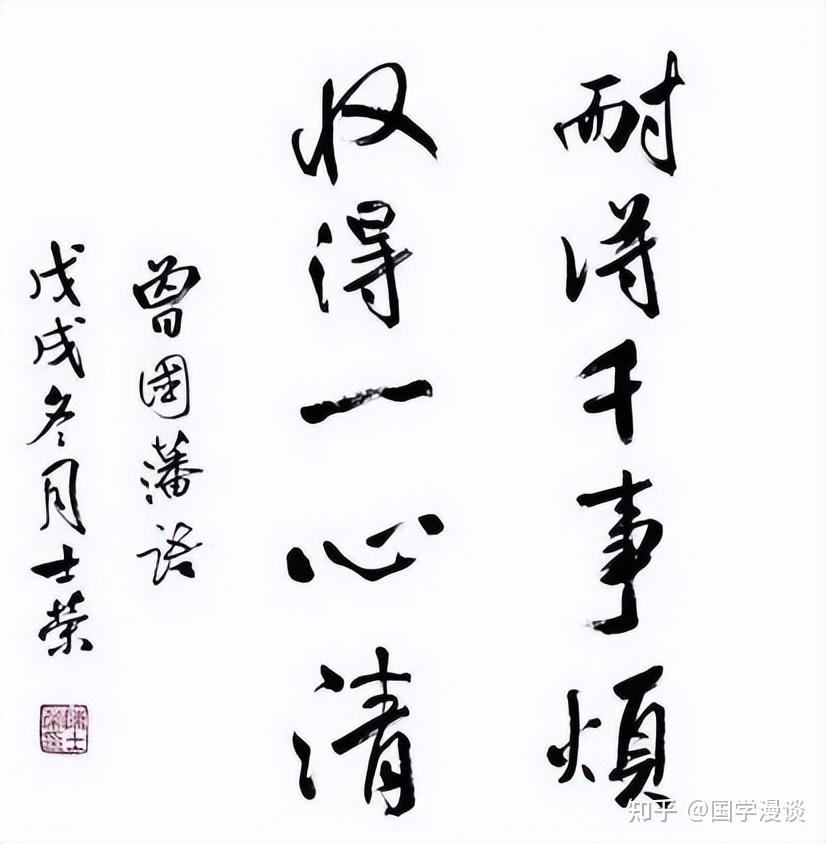 耐得千事煩
收得一心清
曾國藩语
戊戌冬月士荣
知乎 @国学漫谈